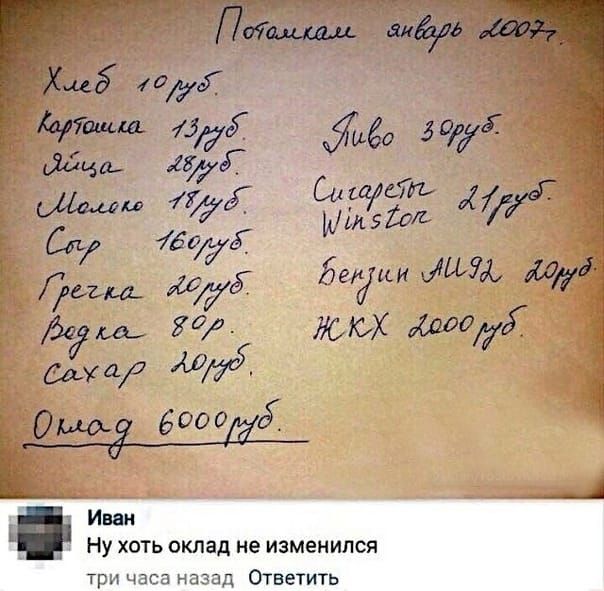 Потомкам январь 2007г.
Хлеб 10 руб.
Картошка 13руб.
Яйца 28руб.
Молоко 18руб.
Сыр 160руб.
Гречка 20руб.
Водка 80р.
Сахар 20руб.
Оклад 6000руб.
Пиво 30руб.
Сигареты Winston 21руб.
Бензин АИ92 20руб.
ЖКХ 2000 руб.
Иван
Ну хоть оклад не изменился
три часа назад Ответить